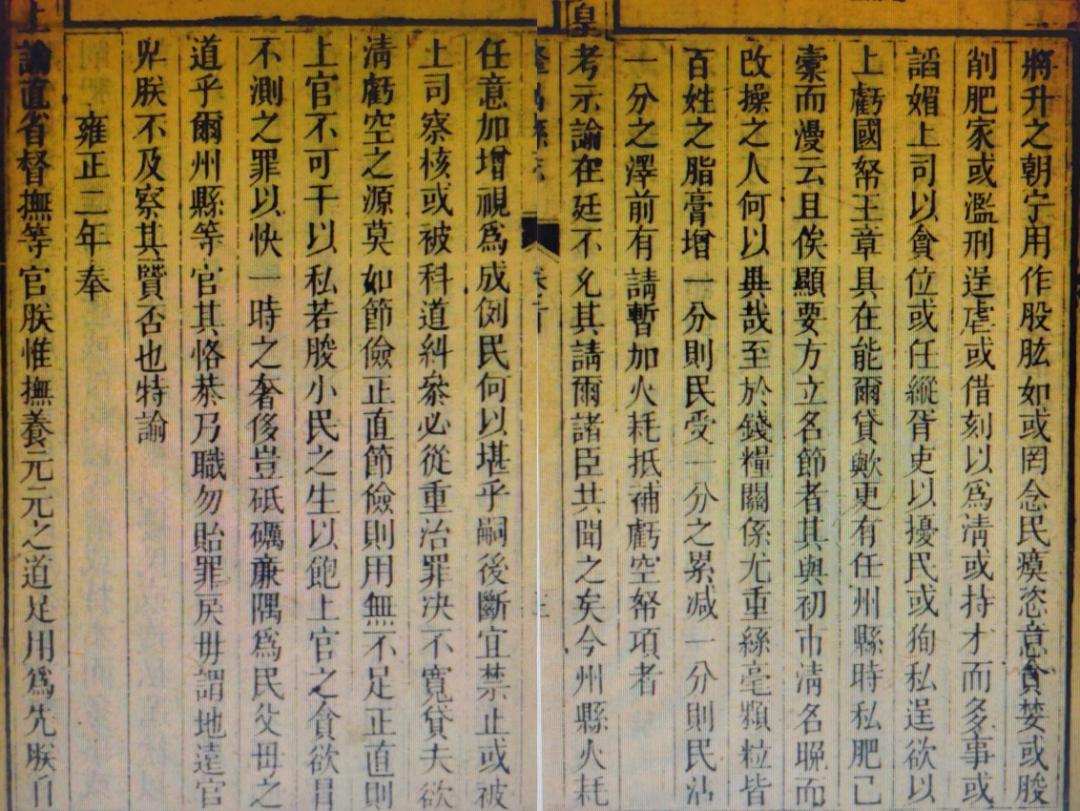 將升之朝宁用作股肱如或罔念民瘼恣意貪婪或朘
削肥家或濫刑逞虐或借刻以為清或持才而多事或
謟媚上司以貪位或任縱胥吏以擾民或狥私逞欲以
上虧國帑王章具在能爾貸歟更有任州縣時私肥己
橐而漫云且俟顯要方立名節者其與初市清名晚而
改操之人何以異哉至於錢糧關係尤重絲毫顆粒皆
百姓之脂膏增一分則民受一分之累減一分則民沾
一分之澤前有請暫加火耗抵補虧空帑項者
皇考示諭在廷不允其請爾諸臣共聞之矣今州縣火耗
任意加增視為成例民何以堪乎嗣後斷宜禁止或被
上司察核或被科道糾叅必從重治罪決不寬貸夫欲
清虧空之源莫如節儉正直節儉則用無不足正直則
上官不可干以私若朘小民之生以飽上官之貪欲冒
不測之罪以快一時之奢侈豈砥礪亷隅為民父母之
道乎爾州縣等官其恪恭乃職勿貽罪戾毋謂地遠官
卑朕不及察其賢否也特諭
雍正二年奉
上諭直省督撫等官朕惟撫養元元之道足用為先朕自